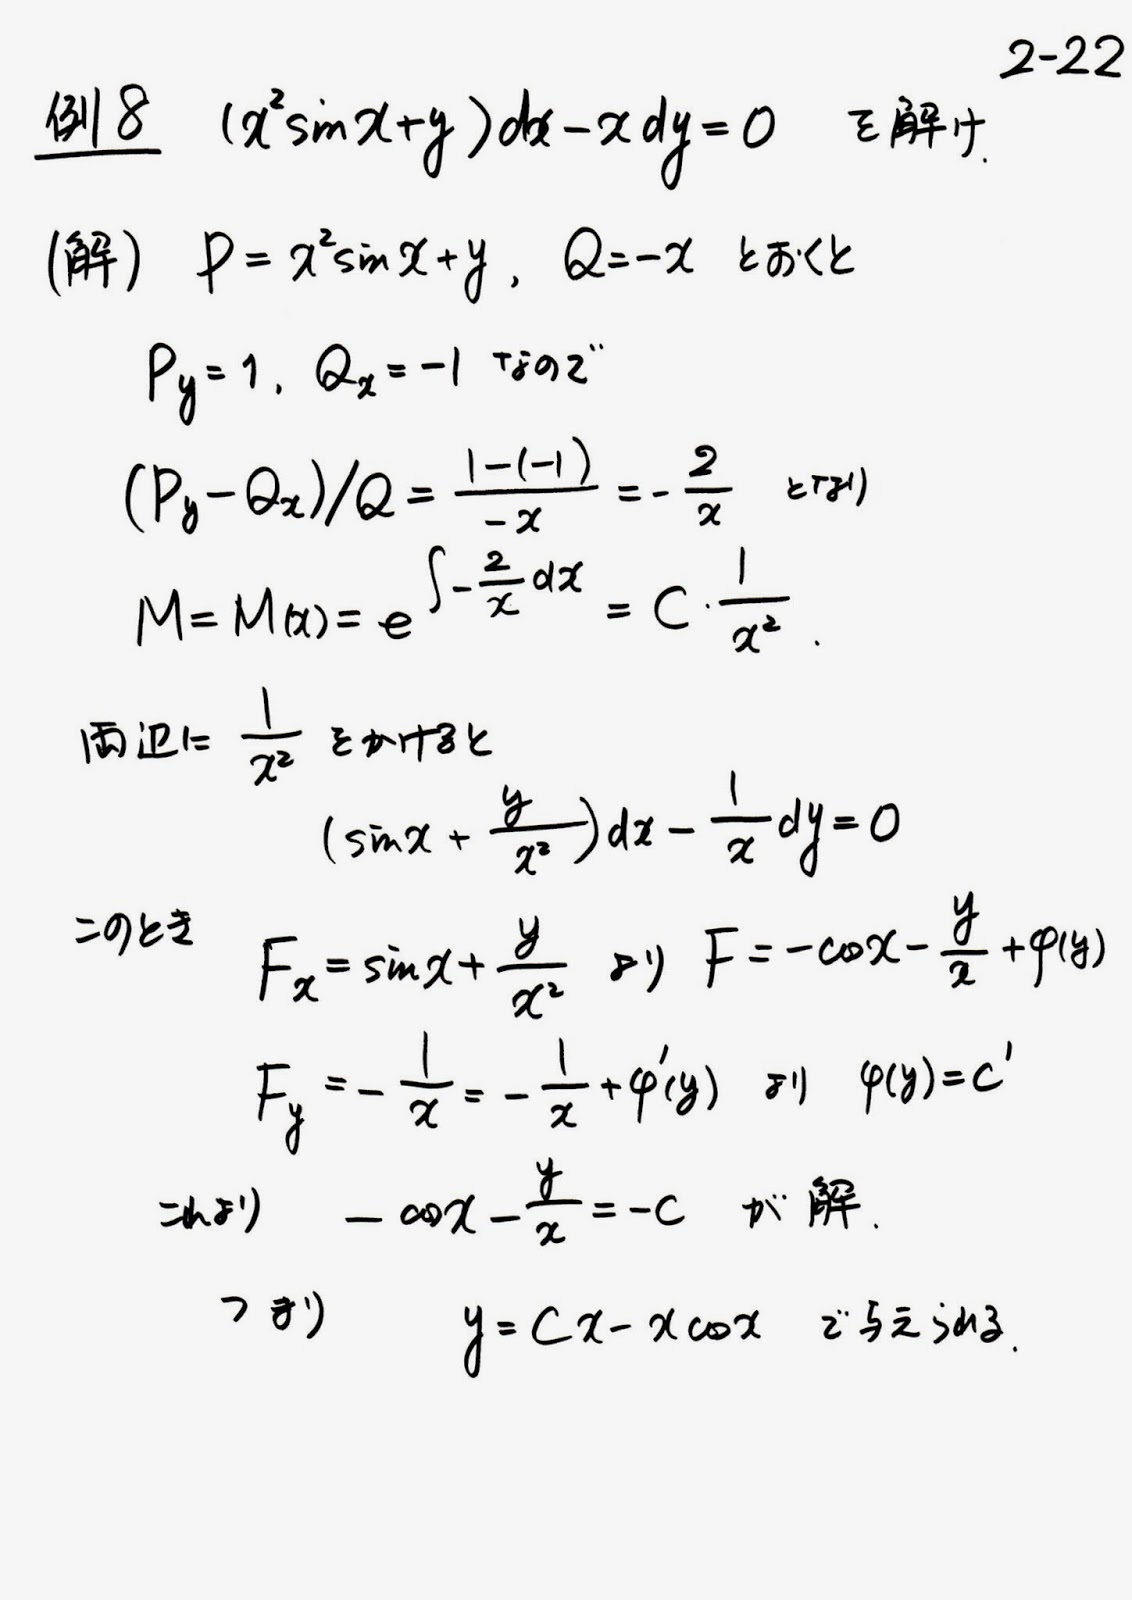 2-22
例8 (x²sinx+y)dx-xdy=0 を解け.
(解) P=x²sinx+y, Q=-x とおくと
Py=1, Qx=-1 なので
(Py-Qx)/Q = \frac{1-(-1)}{-x} = -\frac{2}{x} となり
M=M(x)=e^{∫-\frac{2}{x}dx} = C·\frac{1}{x²}.
両辺に \frac{1}{x²} をかけると
(sinx+\frac{y}{x²})dx-\frac{1}{x}dy=0
このとき Fx=sinx+\frac{y}{x²} より F=-cosx-\frac{y}{x}+φ(y)
Fy=-\frac{1}{x}=-\frac{1}{x}+φ'(y) より φ(y)=C'
これより -cosx-\frac{y}{x}=-C が解.
つまり y=Cx-xcosx で与えられる.